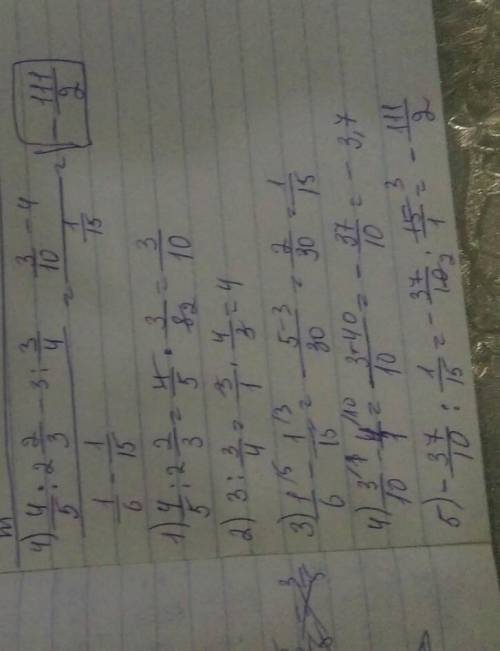 4) (4/5 : 2 2/3 - 3 : 3/4) / (1/6 - 1/15) = (3/10 - 4) / (1/15) = - 111/2
1) 4/5 : 2 2/3 = 4/5 · 3/82 = 3/10
2) 3 : 3/4 = 3/1 · 4/3 = 4
3) 1/6 - 1/15 = (5-3)/30 = 2/30 = 1/15
4) 3/10 - 4/1 = (3-40)/10 = - 37/10 = - 3,7
5) - 37/10 : 1/15 = - 37/10 · 15/1 = - 111/2